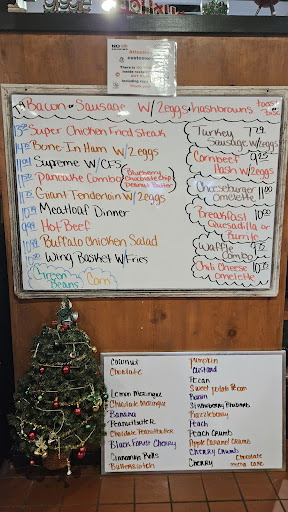 Bacon or Sausage w/ 2eggs + hashbrowns
Super Chicken Fried Steak
Bone-In Ham w/ 2eggs
Supreme w/ CFS
Pancake Combo
Blueberry
Chocolate Chip
Peanut Butter
Giant Tenderloin w/ 2eggs
Meatloaf Dinner
Hot Beef
Buffalo Chicken Salad
Wing Basket w/Fries
Green Beans
Corn
Turkey 7.79
Sausage w/ 2eggs
Cornbeef 9.25
Hash w/ 2eggs
Cheeseburger
Omelette 11.00
Breakfast 10.00
Quesadilla or
Burrito
Waffle
Combo
Chili Cheese
Omelette
Coconut
Chocolate
Lemon Meringue
Chocolate Meringue
Banana
Peanutbutter
Chocolate Peanutbutter
Black Forest Cherry
Cinnamon Rolls
Butterscotch
Pumpkin
Custard
Pecan
Sweet potato Pecan
Raisin
Strawberry Rhubarb
Razzleberry
Peach
Peach Crumb
Apple Caramel Crumb
Cherry Crumb
Cherry
Chocolate